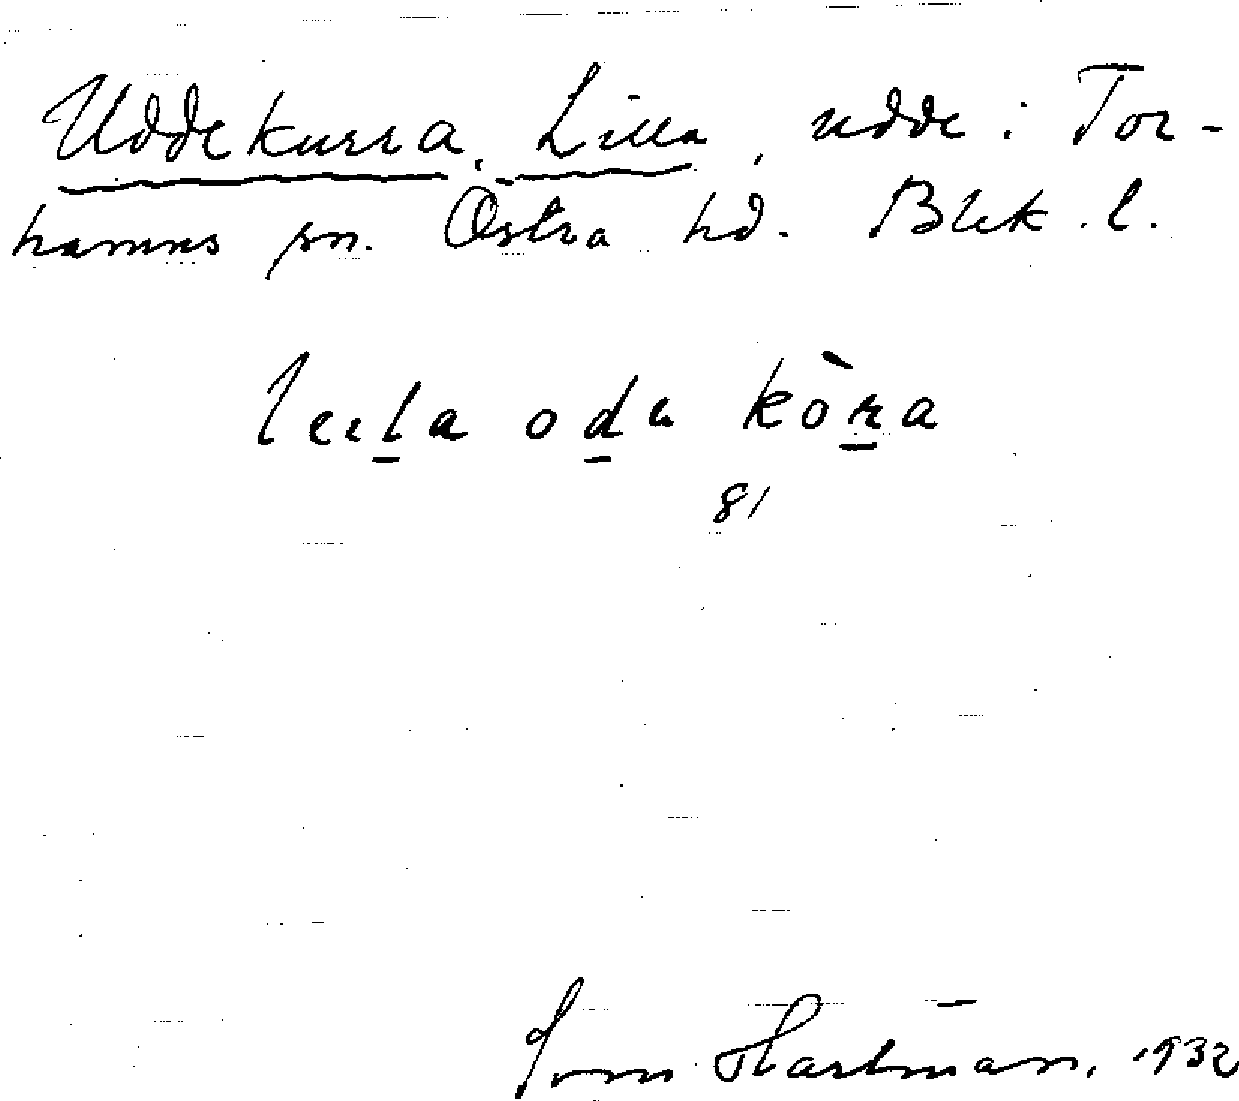 Uddekurra, Lilla, udde i Tor-
hamns sn. Östra hd. Blek. l.
oda kòra
81
Hartman, 1932